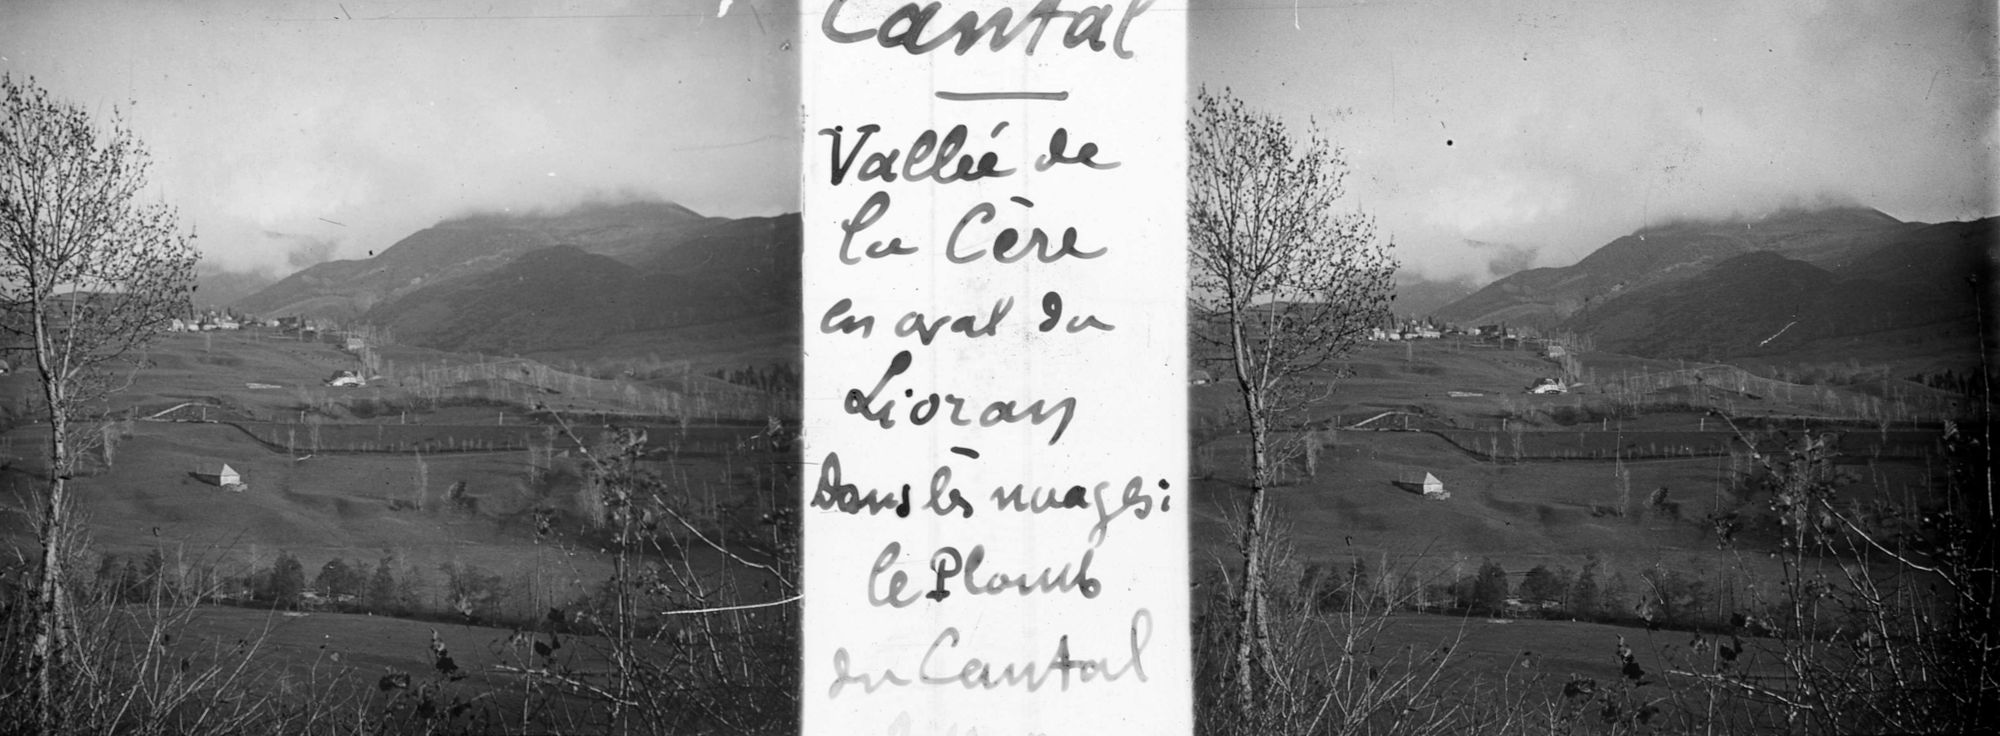 Cantal
Vallée de
la Cère
en aval du
Lioran
Dans les nuages:
le Plomb
du Cantal